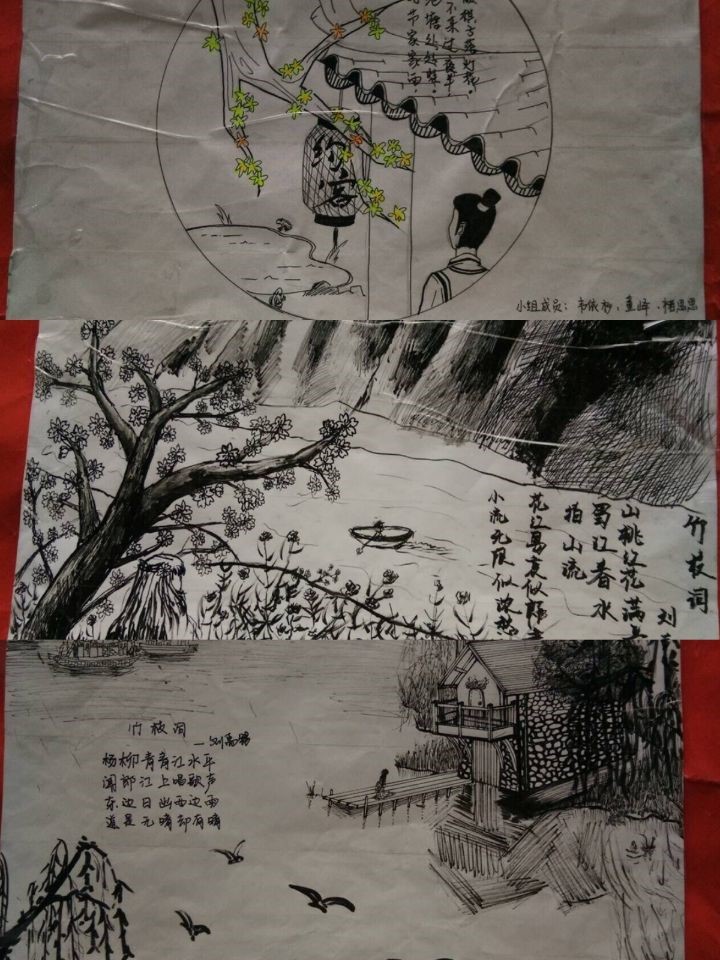 棋子落灯花。
不来过夜半，
池塘处处蛙。
节家家雨，
约客
小组成员：
竹枝词
刘
山桃红花满
蜀江春水
拍山流
花红易衰似郎
小流无限似浓愁
竹枝词
—刘禹锡
杨柳青青江水平
闻郎江上唱歌声
东边日出西边雨
道是无晴却有晴